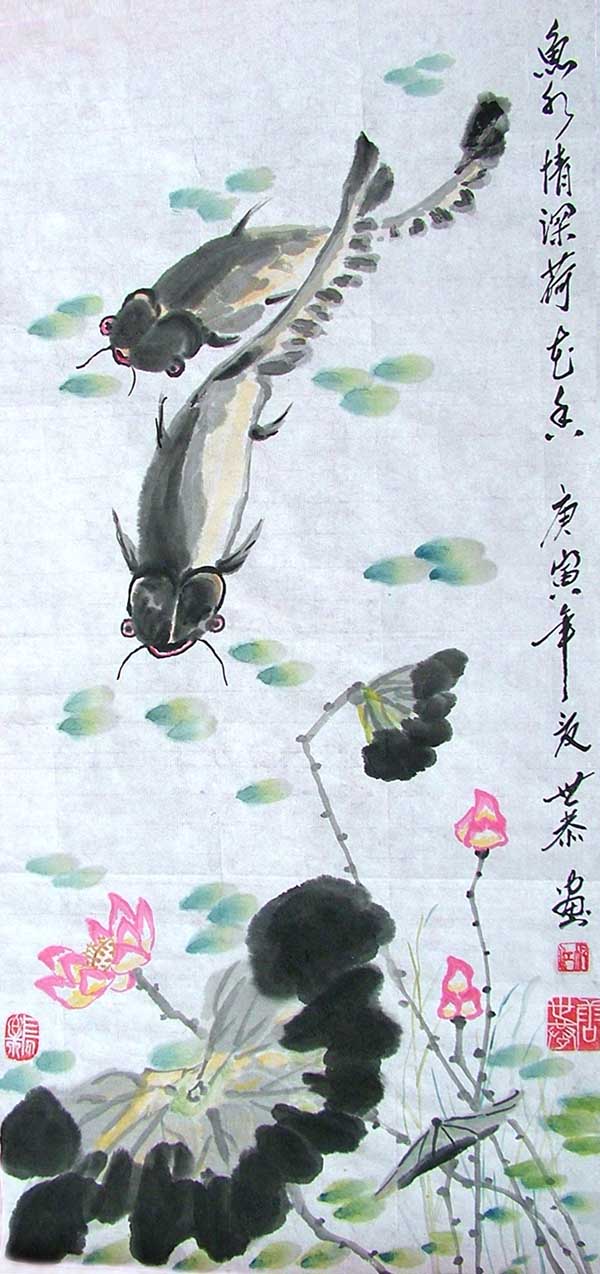 魚水情深荷花香 庚寅年夏世恭畫